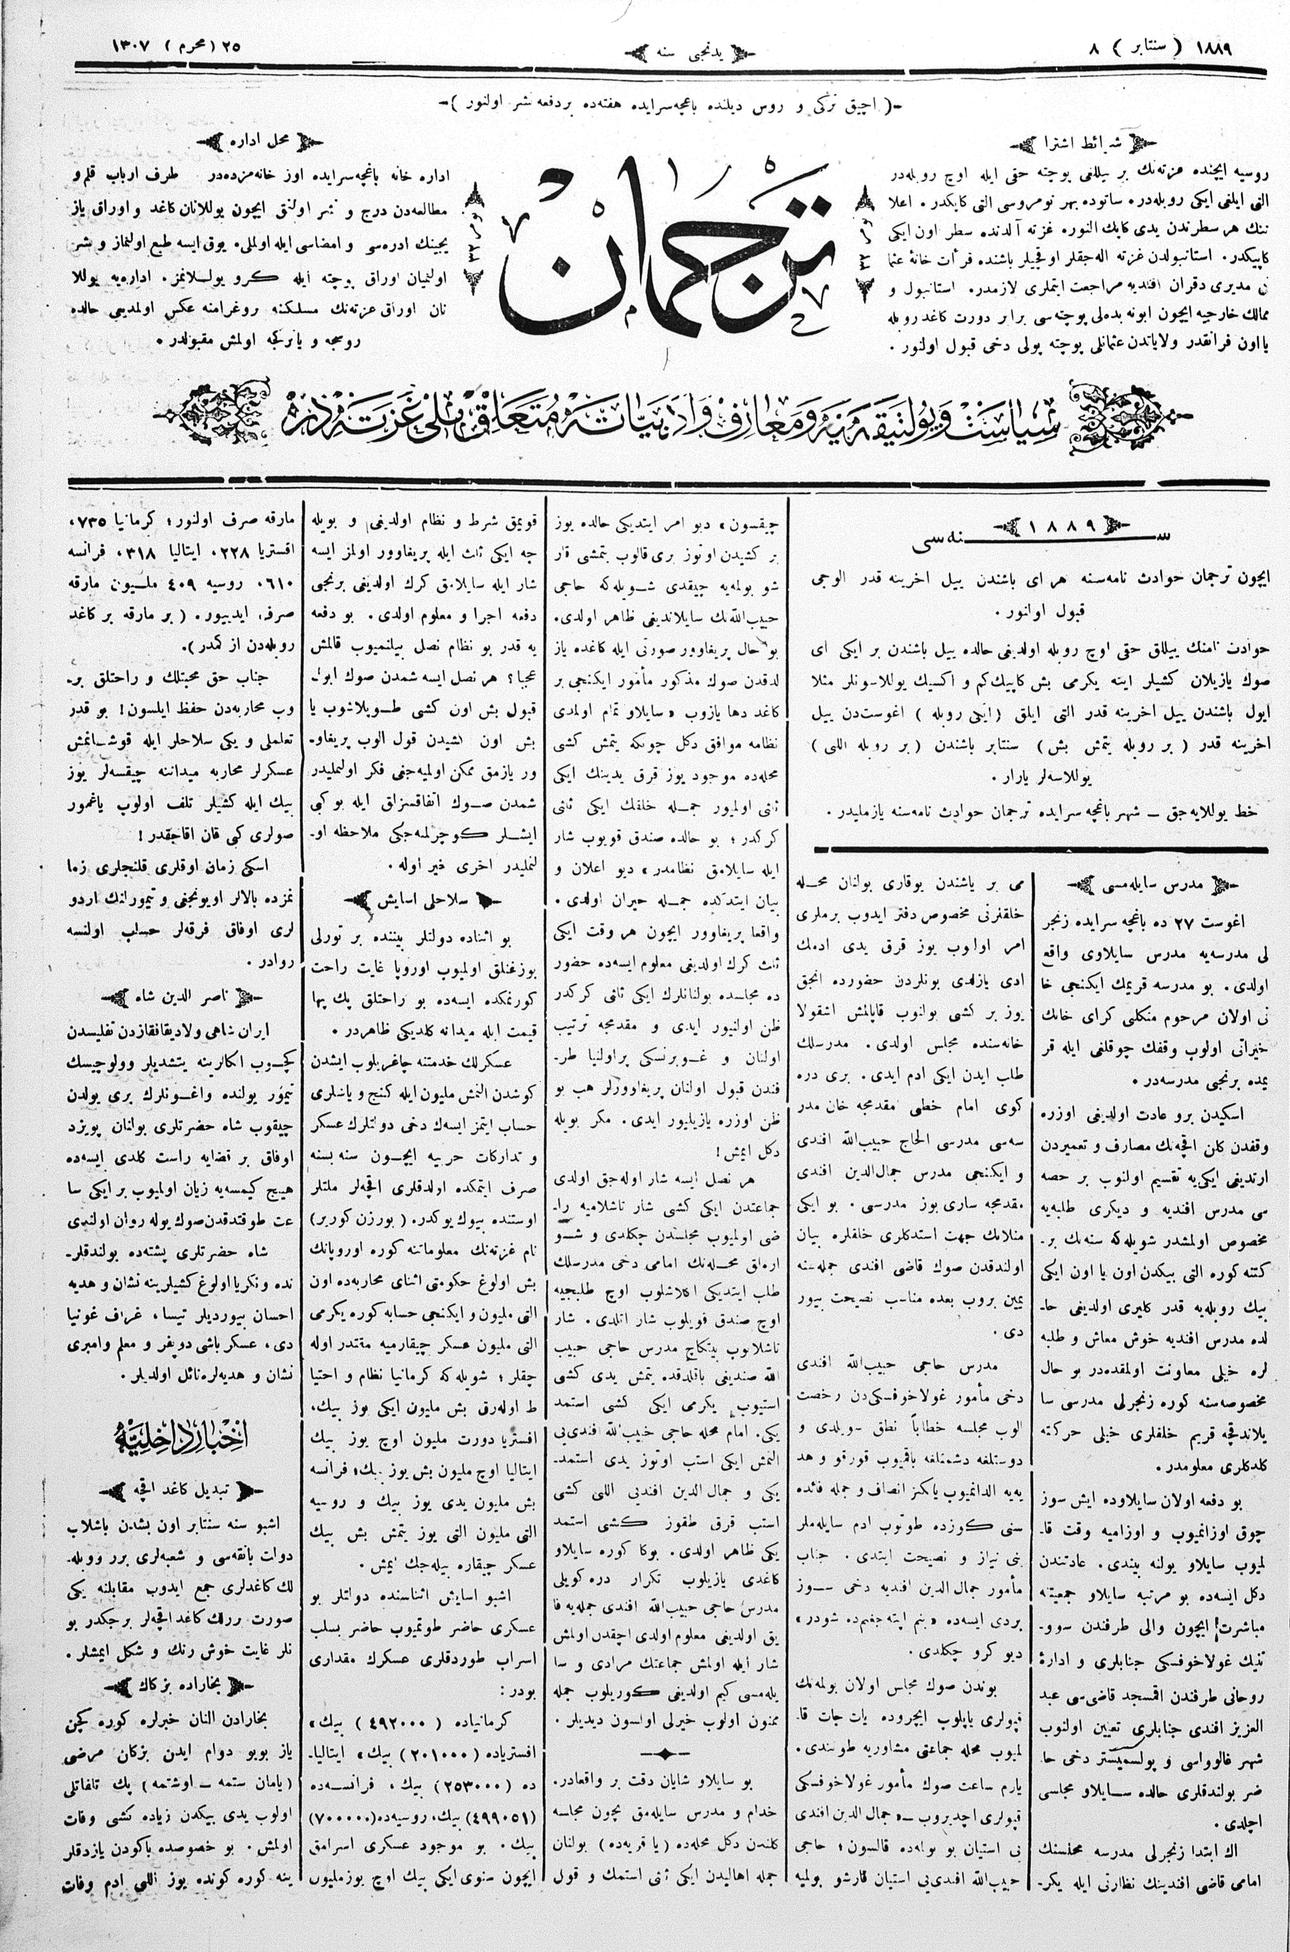 ١٨٨٩ ( سنتابر ) ٨
يدنجى سنه
٢٥ ( محرم ) ١٣٠٧
-( آچيق تركى و روس ديلنده باغچه‌سرايده هفته‌ده بر دفعه نشر اولنور )-
شرائط اشترا
روسيه ايچنده غزته‌نك بر ييللغى پوچته حقى ايله اوچ روبله‌در
التى ايلغى ايكى روبله‌در. ساتوده بهر نومروسى التى كاپكدر. اعلا
ننك هر سطرندن يدى كاپك النور. غزته آلدنده سطر اون ايكى
كاپيكدر. استانبولدن غزته اله‌جقلر اوقجيلر باشنده قرأت خانهٔ عثما
نى مديرى دقران افنديه مراجعت ايتملرى لازمدر. استانبول و
ممالك خارجيه ايچون ابونه بدلى پوچته‌سى برابر دورت كاغد روبله
يا اون فرانقدر ولاياتدن عثمانلى پوچته پولى دخى قبول اولنور .
ترجمان
محل اداره
اداره خانه باغچه‌سرايده اوز خانه‌مزده‌در طرف ارباب قلم و
مطالعه‌دن درج و نشر اولنق ايچون يوللانان كاغد و اوراق ياز
يجينك ادره‌سى و امضاسى ايله اولملى. يوق ايسه طبع اولنماز و نشر
اولنميان اوراق پوچته ايله كرو يوللانمز. اداره‌يه يوللا
نان اوراق غزته‌نك مسلكنه پروغرامنه عكس اولمديغى حالده
روسجه و ياتركجه اولمش مقبولدر .
سياست و پولتيقه‌يه و معارف و ادبياته متعلق ملى غزته‌در
١٨٨٩ سنه‌سى
ايچون ترجمان حوادث نامه‌سنه هر اى باشندن ييل اخرينه قدر الوجى
قبول اولنور .
حوادث نامه‌نك ييللق حقى اوچ روبله اولديغى حالده ييل باشندن بر ايكى اى
صوك يازيلان كشيلر ايته يكرمى بش كاپيك كم و اكسيك يوللاسونلر مثلا
ايول باشندن ييل اخرينه قدر التى ايلق (ايكى روبله ) اغوست‌دن ييل
اخرينه قدر ( بر روبله يتمش بش ) سنتابر باشندن ( بر روبله اللى )
يوللاسه‌لر يارار .
خط يوللايه‌جق — شهر باغچه سرايده ترجمان حوادث نامه‌سنه يازمليدر .
مدرس سايله‌مسى
اغوست ٢٧ ده باغچه سرايده زنجر
لى مدرسه‌يه مدرس سايلاوى واقع
اولدى. بو مدرسه قريمك ايكنجى خا
نى اولان مرحوم منكلى كراى خانك
خيراتى اولوب وقفك چوقلغى ايله قر
يمده برنجى مدرسه‌در .
اسكيدن برو عادت اولديغى اوزره
وقفدن كلن اقچه‌نك مصارف و تعميردن
ارتديغى ايكى‌يه تقسيم اولنوب بر حصه
سى مدرس افنديه و ديكرى طلبه‌يه
مخصوص اولمشدر شويله‌كه سنه‌نك بر-
كتنه كوره التى بيكدن اون يا اون ايكى
بيك روبله‌يه قدر كليرى اولديغى حا-
لده مدرس افنديه خوش معاش و طلبه
لره خيلى معاونت اولمقده‌در بو حال
مخصوصه‌سنه كوره زنجرلى مدرسى سا
يلاندقچه قريم خلقلرى خيلى حركته
كلدكلرى معلومدر.
بو دفعه اولان سايلاوده ايش سوز
چوق اوزانميوب و اوزاميه وقت قا-
لميوب سايلاو يولنه بيندى. عادتندن
دكل ايسه‌ده بو مرتبه سايلاو جمعيتنه
مباشرت ايچون والى طرفندن سوو-
تنيك غولاخوفسكى جنابلرى و ادارهٔ
روحانى طرفندن اقمسجد قاضى‌سى عبد
العزيز افندى جنابلرى تعيين اولنوب
شهر غالوواسى و پولسميستر دخى حا-
ضر بولندقلرى حالده سايلاو مجلسى
اچلدى.
اك ابتدا زنجرلى مدرسه محله‌سنك
امامى قاضى افندينك نظارتى ايله يكر-
مى بر ياشندن يوقارى بولنان محله
خلقلرنى مخصوص دفتر ايدوب برملرى
امر اولوب يوز قرق يدى ادمك
ادى يازلدى بونلردن حضورده انجق
يوز بر كشى بولنوب قاپالمش اشقولا
خانه‌سنده مجلس اولدى. مدرسلك
طلب ايدن ايكى ادم ايدى. برى دره
كوى امام خطى مقدمجه خان مدر
سه‌سى مدرسى الحاج حبيب‌الله افندى
و ايكنجى مدرس جمال‌الدين افندى
مقدمجه سارى يوز مدرسى. بو ايكى
منلانك جهت استدكلرى خلقلره بيان
اولندقدن صوك قاضى افندى جمله‌سنه
يمين بروب بعده مناسب نصيحت بيور
دى .
مدرس حاجى حبيب‌الله افندى
دخى مأمور غولاخوفسكى‌دن رخصت
الوب مجلسه خطاباً نطق سويلدى و
دوستلغه دشمنلغه باقميوب قورقو و هد
يه‌يه الدانميوب يالكز انصاف و جمله فائده
سنى كوزده طوتوب ادم سايله‌ملر
ينى نياز و نصيحت ايتدى. جناب
مأمور جمال الدين افنديه دخى سوز
بردى ايسه‌ده
ديو كرو چكلدى .
بوندن صوك مجلس اولان بولمه‌نك
قپولرى ياپلوب ايچروده يات چات قا-
لميوب محله جماعتى مشاوريه طوتندى.
يارم ساعت صوك مأمور غولاخوفسكى
قپولرى اچديروب — « جمال الدين افندى
نى استيان بو بولمه‌ده قالسون ؛ حاجى
حبيب‌الله افندى‌يى استيان قارشو بولميه
چيقسون » ديو امر ايتديكى حالده يوز
بر كشيدن اوتوز برى قالوب يتمشى قار
شو بولمه‌يه چيقدى شويله‌كه حاجى
حبيب‌الله‌نك سايلانديغى ظاهر اولدى.
بو حال پريغاوور صورتى ايله كاغده ياز
لدقدن صوك مذكور مأمور ايكنجى بر
كاغد دها يازوب « سايلاو تمام اولمدى
نظامه موافق دكل چونكه يتمش كشى
محله‌ده موجود يوز قرق يدينك ايكى
ثلثى اولميور جمله خلقك ايكى ثلثى
كركدر ؛ بو حالده صندق قويوب شار
ايله سايلامق نظامدر » ديو اعلان و
بيان ايتدكده جمله حيران اولدى.
واقعا پريغاوور ايچون هر وقت ايكى
ثلث كرك اولديغى معلوم ايسه‌ده حضور
ده مجلسده بولنانلرك ايكى ثلثى كركدر
ظن اولنيور ايدى و مقدمجه ترتيب
اولنان و غوبرنسكى پراولنيا طر-
فندن قبول اولنان پريغاوورلر هپ بو
ظن اوزره يازيليور ايدى. مكر بويله
دكل ايمش !
هر نصل ايسه شار اوله‌جق اولدى
جماعتدن ايكى كشى شار تاشلاميه را-
ضى اولميوب مجلسدن چكلدى و شو
اره‌لق محله‌نك امامى دخى مدرسلك
طلب ايتديكى اكلاشلوب اوچ طلبجيه
اوچ صندق قويلوب شار اتلدى. شار
تاشلانوب بيتكاچ مدرس حاجى حبيب
الله صنديغى باقلدقده يتمش يدى كشى
استيوب يكرمى ايكى كشى استمد
يكى. امام محله حاجى خبيب‌الله افندى‌يى
التمش ايكى استب اوتوز يدى استمد-
يكى و جمال الدين افندى‌يى اللى كشى
استب قرق طقوز كشى استمد
يكى ظاهر اولدى. بوكا كوره سايلاو
كاغدى يازيلوب تكرار دره‌كويلى
مدرس حاجى حبيب‌الله افندى جمله‌يه فا
يق اولديغى معلوم اولدى اچقدن اولمش
شار ايله اولمش جماعتك مرادى و سا
يله‌مسى كيم اولديغى كوريلوب جمله
ممنون اولوب خيرلى اولسون ديديلر .
بو سايلاو شايان دقت بر واقعه‌در.
خدام و مدرس سايله‌مق ايچون مجلسه
كلندن دكل محله‌ده (يا قريه‌ده) بولنان
جمله اهالينك ايكى ثلثى استمك و قول
قويمق شرط و نظام اولديغى و بويله
جه ايكى ثلث ايله پريغاوور اولمز ايسه
شار ايله سايلامق كرك اولديغى برنجى
دفعه اجرا و معلوم اولدى. بو دفعه
يه قدر بو نظام نصل بيلنميوب قالمش
عجبا ؟ هر نصل ايسه شمدن صوك ابوله
قبول بش اون كشى طوپلاشوب يا
بش اون كشيدن قول الوب پريغاو-
ور يازمق ممكن اولميه‌جغى فكر اولنمليدر
شمدن صوك اتفاقسزلق ايله بو كبى
ايشلر كوچرلمه‌جكى ملاحظه او-
لنمليدر اخرى خير اوله .
سلاحلى اسايش
بو اثناده دولتلر بيننده بر تورلى
بوزغنلق اولميوب اوروپا غايت راحت
كورنمكده ايسه‌ده بو راحتلق پك بها
قيمت ايله ميدانه كلديكى ظاهردر .
عسكرلك خدمتنه چاغريلوب ايشدن
كوشدن التمش مليون ايله كنج و ياشلرى
حساب ايتمز ايسه‌ك دخى دولتلرك عسكر
و تداركات حربيه ايچون سنه بسنه
صرف ايتمكده اولدقلرى اقچه‌لر ملتلر
اوستنده بيوك يوكدر. ( بورزن كوربر)
نام غزته‌نك معلوماتنه كوره اوروپانك
بش اولوغ حكومتى اثناى محاربه‌ده اون
التى مليون و ايكنجى حسابه كوره يكرمى
التى مليون عسكر چيقارميه مقتدر اوله
چقلر ؛ شويله‌كه كرمانيا نظام و احتيا
ط اوله‌رق بش مليون ايكى يوز بيك،
افستريا دورت مليون اوچ يوز بيك
ايتاليا اوچ مليون بش يوز بيك؛ فرانسه
بش مليون يدى يوز بيك و روسيه
التى مليون التى يوز يتمش بش بيك
عسكر چيقاره بيله‌جك ايمش.
اشبو اسايش اثناسنده دولتلر بو
عسكرى حاضر طوتميوب حاضر بسلب
اسراب طوردقلرى عسكرك مقدارى
بودر :
كرمانياده ( ٤٩٢٠٠٠ ) بيك،
افسترياده (٢٠١٠٠٠) بيك، ايتاليا-
ده (٢٥٣٠٠٠) بيك، فرانسه‌ده
(٤٩٩٠٥١) بيك، روسيه‌ده (٧٠٠٠٠٠)
بيك. بو موجود عسكرى اسرامق
ايچون سنوى ايكى بيك اوچ يوز مليون
مارقه صرف اولنور ؛ كرمانيا ٧٣٥،
افستريا ٢٢٨، ايتاليا ٣١٨، فرانسه
٦١٠، روسيه ٤٠٩ مليون مارقه
صرف ايديبور. ( بر مارقه بر كاغد
روبله‌دن از كمدر).
جناب حق محبتلك و راحتلق بر-
وب محاربه‌دن حفظ ايلسون! بو قدر
تعلملى و يكى سلاحلر ايله قوشانمش
عسكرلر محاربه ميداننه چيقسه‌لر يوز
بيك ايله كشيلر تلف اولوب ياغمور
صولرى كبى قان اقاجقدر !
اسكى زمان اوقلرى قلنجلرى زما
نمزده بالالر اويونجغى و تيمورلنك اردو
لرى اوفاق فرقه‌لر حساب اولنسه
روادر .
ناصر الدين شاه
ايران شاهى ولاديقافقازدن تفليسدن
كچوب اكنارينه يتشديلر وولوچيسك
تيمور يولنده واغونلرك برى يولدن
چيقوب شاه حضرتلرى بولنان پويزد
اوفاق بر قضايه راست كلدى ايسه‌ده
هيچ كيمسه‌يه زيان اولميوب بر ايكى سا
عت طوقتدقدن صوك يوله روان اولندى
شاه حضرتلرى پشته‌ده بولندقلر-
نده ونكريا اولوغ كشيلرينه نشان و هديه
احسان بيورديلر تيسا، غراف غونيا
دى، عسكر باشى دو پغر و معلم وامبرى
نشان و هديه‌لره نائل اولديلر .
اخبار داخليه
تبديل كاغد اقچه
اشبو سنه سنتابر اون بشدن باشلاب
دولت بانقه‌سى و شعبه‌لرى برر روبله-
لك كاغدلرى جمع ايدوب مقابلنه يكى
صورت بررلك كاغد اقچه‌لر برجكدر بو
نلر غايت خوش رنك و شكل ايمشلر .
بخاراده بزكاك
بخارادن النان خبرلره كوره كچن
ياز بويو دوام ايدن بزكاك مرضى
(يامان ستمه — اوشتمه) پك تلفاتلى
اولوب يدى بيكدن زياده كشى وفات
اولمش. بو خصوصده باكودن يازدقلر
ينه كوره كونده يوز اللى ادم وفات